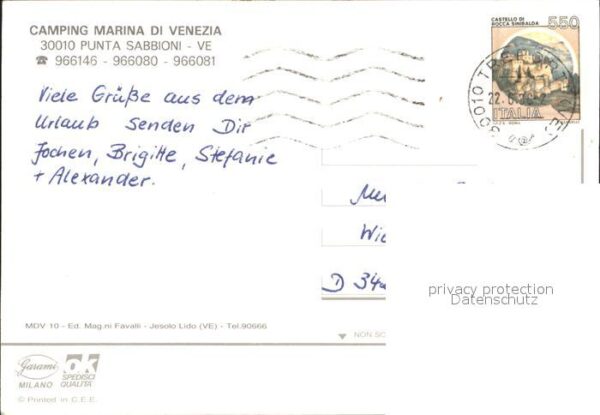 CAMPING MARINA DI VENEZIA
30010 PUNTA SABBIONI - VE
☎ 966146 - 966080 - 966081
CASTELLO DI
ROCCA SINIBALDA
550
ITALIA
30010
22.
Viele Grüße aus dem
Urlaub senden Dir
Jochen, Brigitte, Stefanie
+ Alexander.
D
privacy protection
Datenschutz
MDV 10 - Ed. Mag.ni Favalli - Jesolo Lido (VE) - Tel.90666
NON SC
Garami
MILANO
ok
SPEDISCI
QUALITÀ
© Printed in C.E.E.